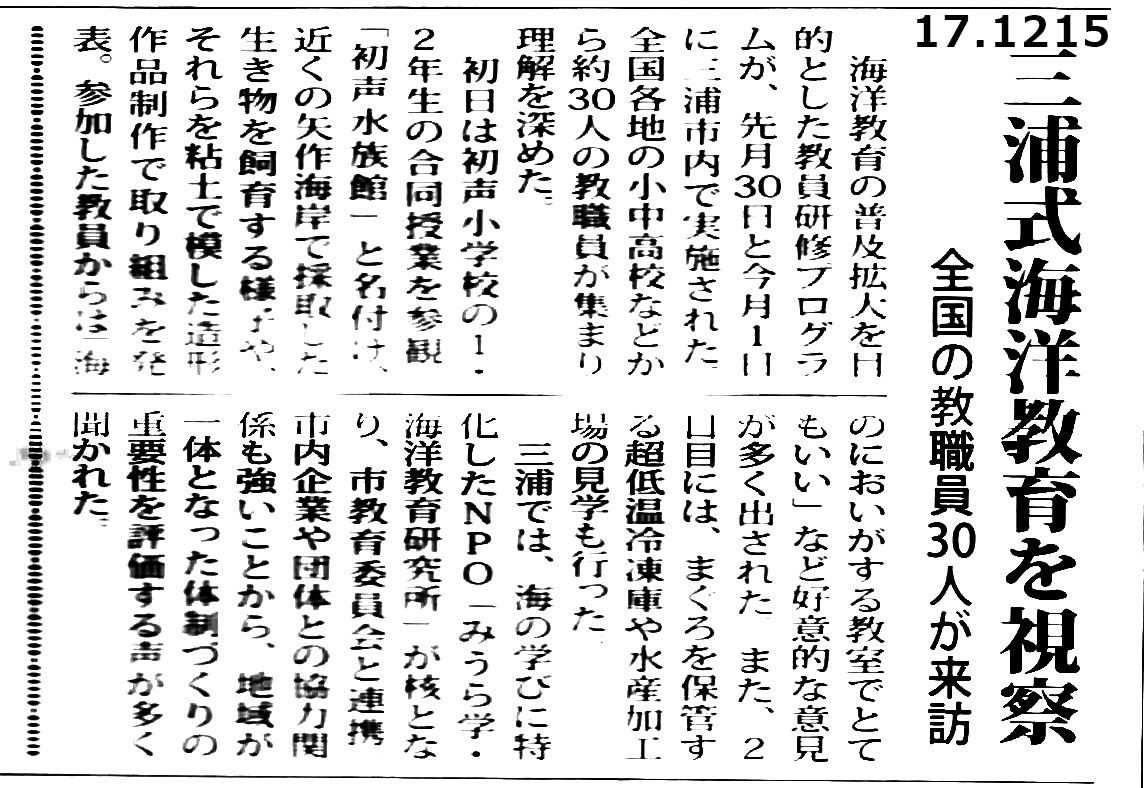 17.1215
三浦式海洋教育を視察
全国の教職員30人が来訪
海洋教育の普及拡大を目
的とした教員研修プログラ
ムが、先月30日と今月1日
に三浦市内で実施された。
全国各地の小中高校などか
ら約30人の教職員が集まり
理解を深めた。
初日は初声小学校の1・
2年生の合同授業を参観
「初声水族館」と名付け、
近くの矢作海岸で採取した
生き物を飼育する様子や、
それらを粘土で模した造形
作品制作で取り組みを発
表。参加した教員からは「海
のにおいがする教室でとて
もいい」など好意的な意見
が多く出された。また、2
日目には、まぐろを保管す
る超低温冷凍庫や水産加工
場の見学も行った。
三浦では、海の学びに特
化したNPO「みうら学・
海洋教育研究所」が核とな
り、市教育委員会と連携
市内企業や団体との協力関
係も強いことから、地域が
一体となった体制づくりの
重要性を評価する声が多く
聞かれた。